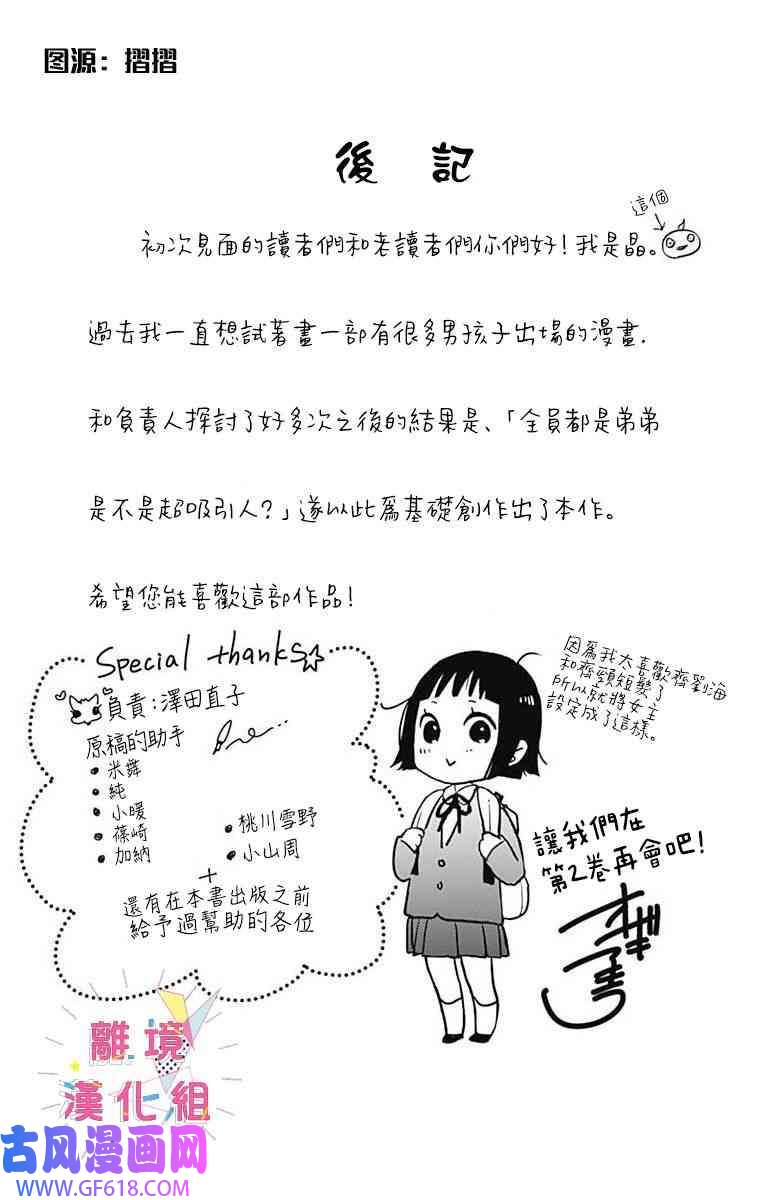 图源：摺摺
後 記
這個
初次見面的讀者們和老讀者們你們好！我是晶。
過去我一直想試著畫一部有很多男孩子出場的漫畫.
和負責人探討了好多次之後的結果是、「全員都是弟弟
是不是超吸引人？」遂以此為基礎創作出了本作。
希望您能喜歡這部作品！
Special thanks
負責：澤田直子
原稿的助手
•米舞
•純
•小暖
•篠崎
•加納
•桃川雪野
•小山周
+
還有在本書出版之前
給予過幫助的各位
因為我太喜歡齊劉海
和齊頸短髮了
所以就將女主
設定成了這樣。
讓我們在
第2卷再會吧！
離境
漢化組
古风漫画网
WWW.GF618.COM